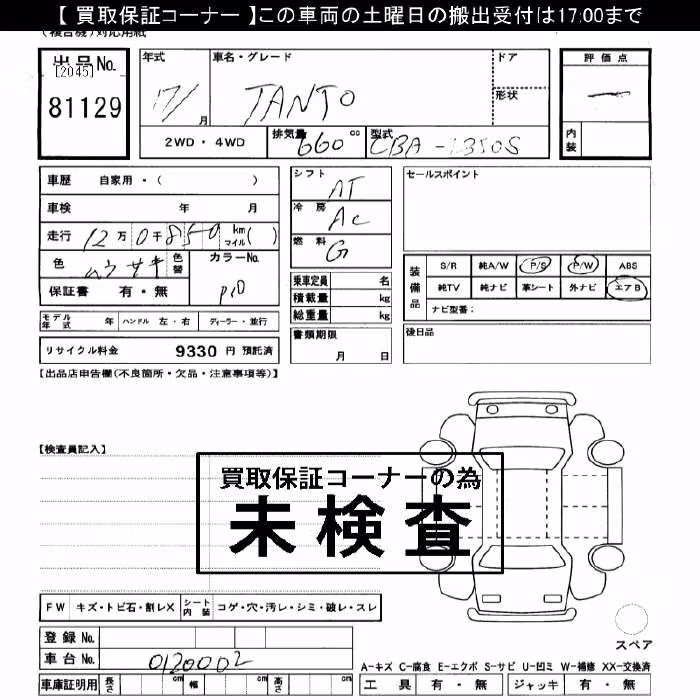 【 買取保証コーナー 】この車両の土曜日の搬出受付は17:00まで
出品No. [2045] 81129
年式 17/ 月
車名・グレード TANTO
ドア
形状
評価点 ー
内装
2WD・4WD 排気量 660 cc 型式 CBA-L350S
車歴 自家用・( )
車検 年 月
走行 12万 0千 850 km マイル( )
色 ムラサキ 色替 カラーNo. P10
保証書 有・無
シフト AT
冷房 AC
燃料 G
乗車定員 名
積載量 kg
総重量 kg
セールスポイント
装備品 S/R 純A/W P/S P/W ABS
純TV 純ナビ 革シート 外ナビ エアB
ナビ型番:
モデル年式 年 ハンドル 左・右 ディーラー・並行
書類期限 月 日
後日品
リサイクル料金 9330 円 預託済
【出品店申告欄(不良箇所・欠品・注意事項等)】
【検査員記入】
買取保証コーナーの為
未検査
FW キズ・トビ石・割レX シート内装 コゲ・穴・汚レ・シミ・破レ・スレ
スペア
登録No.
車台No. 0120002
A-キズ C-腐食 E-エクボ S-サビ U-凹ミ W-補修 XX-交換済
車庫証明用 長さ cm 幅 cm 高さ cm 工具 有・無 ジャッキ 有・無